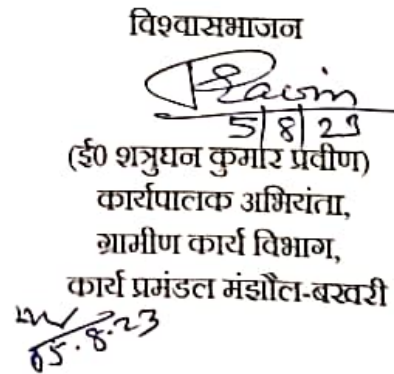 विश्वासभाजन
Pravin
5/8/23
(ई0 शत्रुघन कुमार प्रवीण)
कार्यपालक अभियंता,
ग्रामीण कार्य विभाग,
कार्य प्रमंडल मंझौल-बखरी
05.8.23